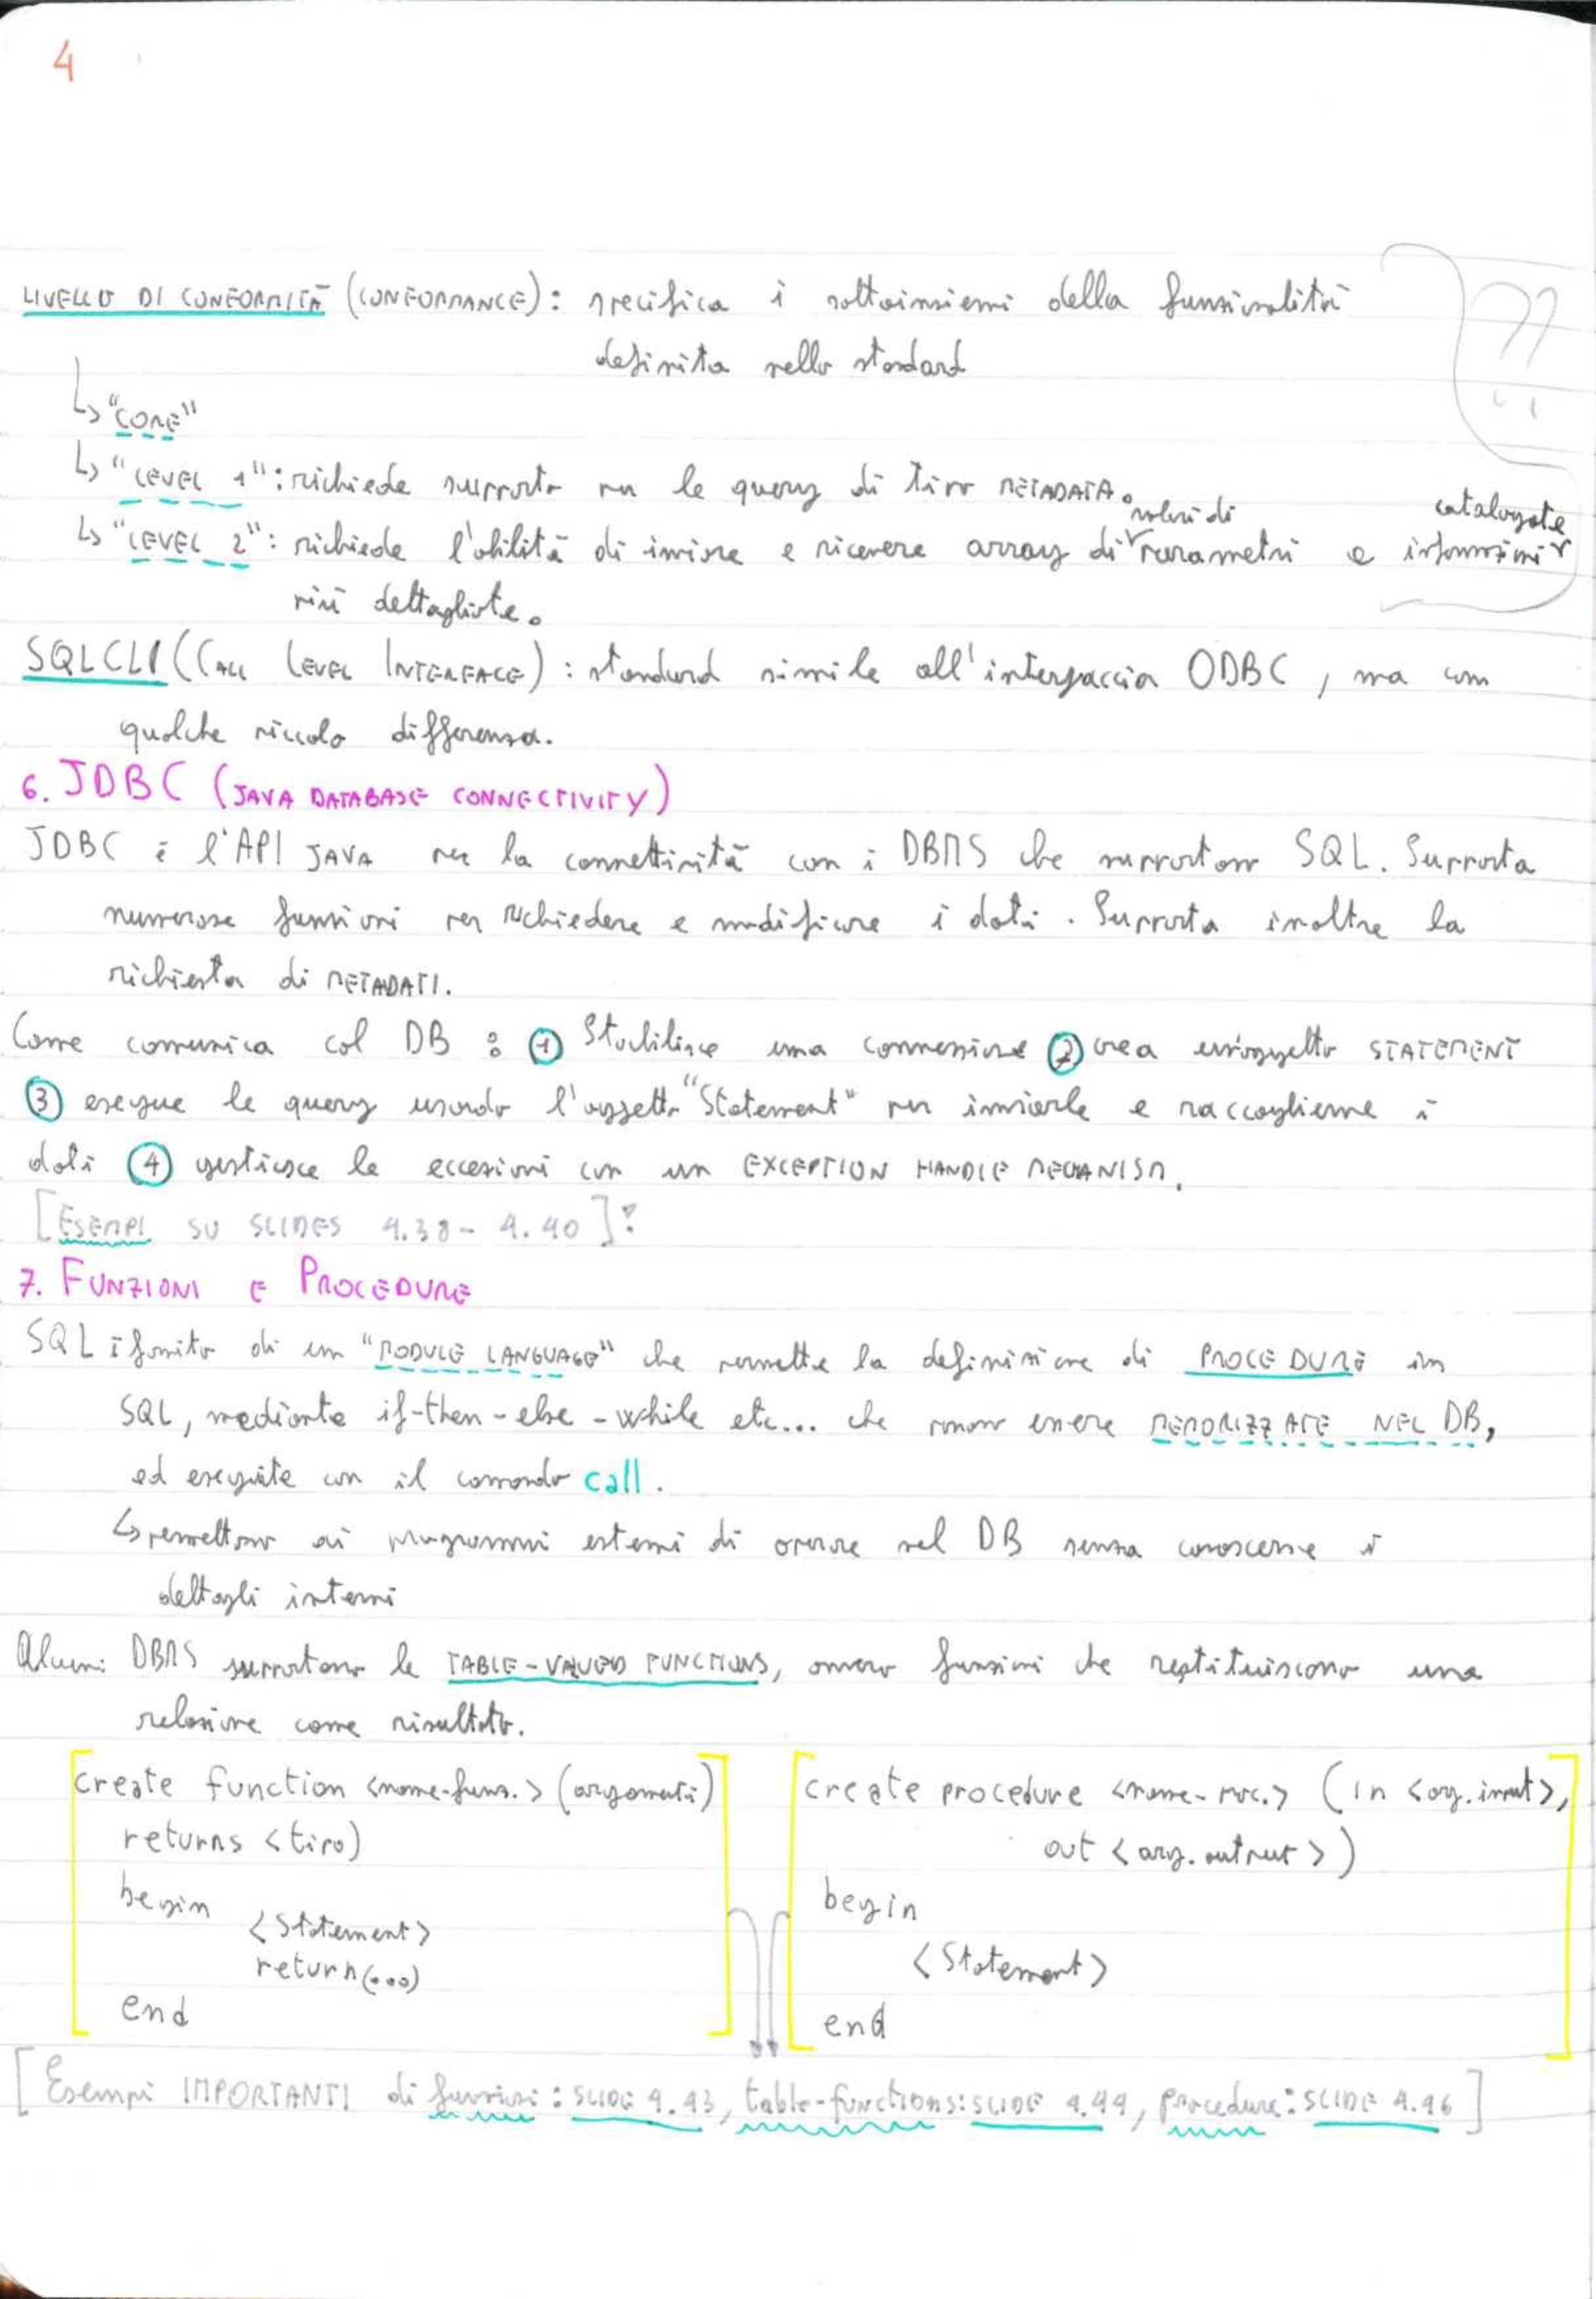 4
LIVELLO DI CONFORMITÀ (CONFORMANCE): specifica i sottoinsiemi della funzionalità
definita nello standard
??
↳ "CORE"
↳ "LEVEL 1": richiede supporto su le query di tipo METADATA.
valori di
catalogate
↳ "LEVEL 2": richiede l'abilità di inviare e ricevere array di parametri e informazioni
più dettagliate.
SQL CLI (CALL LEVEL INTERFACE): standard simile all'interfaccia ODBC, ma con
qualche piccola differenza.
6. JDBC (JAVA DATABASE CONNECTIVITY)
JDBC è l'API JAVA per la connettività con i DBMS che supportano SQL. Supporta
numerose funzioni per richiedere e modificare i dati. Supporta inoltre la
richiesta di METADATI.
Come comunica col DB: ① Stabilisce una connessione ② crea un'oggetto STATEMENT
③ esegue le query usando l'oggetto "Statement" per inviarle e raccoglierne i
dati ④ gestisce le eccezioni con un EXCEPTION HANDLE MECHANISM.
[ESEMPI SU SLIDES 4.38 - 4.40]:
7. FUNZIONI E PROCEDURE
SQL è fornito di un "MODULE LANGUAGE" che permette la definizione di PROCEDURE in
SQL, mediante if-then-else-while etc... che possono essere MEMORIZZATE NEL DB,
ed eseguite con il comando call.
↳ permettono ai programmi esterni di operare nel DB senza conoscerne i
dettagli interni
Alcuni DBMS supportano le TABLE-VALUED FUNCTIONS, ovvero funzioni che restituiscono una
relazione come risultato.
create function <nome-funz.> (argomenti)
returns <tipo)
begin
<Statement>
return(...)
end
create procedure <nome-proc.> (in <arg.input>,
out <arg.output>)
begin
<Statement>
end
[Esempi IMPORTANTI di funzioni: SLIDE 4.43, table-functions: SLIDE 4.44, procedure: SLIDE 4.46]